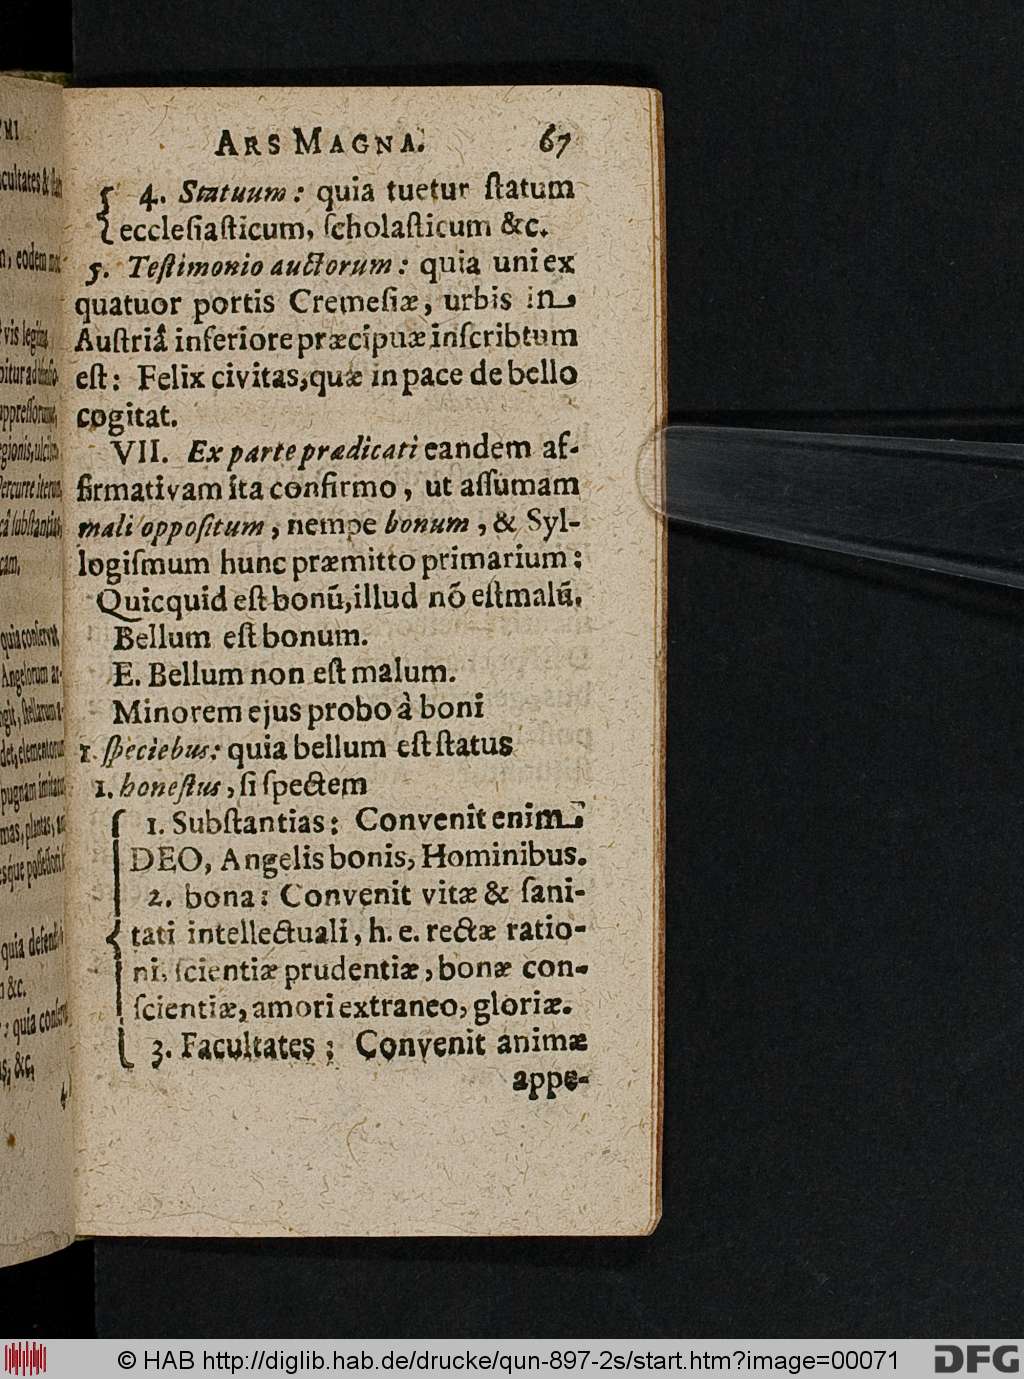 ARS MAGNA. 67
4. Statuum: quia tuetur ſtatum
eccleſiaſticum, ſcholaſticum &c.
5. Teſtimonio auctorum: quia uni ex
quatuor portis Cremeſiæ, urbis in
Auſtriâ inferiore præcipuæ inſcribtum
eſt: Felix civitas, quæ in pace de bello
cogitat.
VII. Ex parte prædicati eandem af-
firmativam ita confirmo, ut aſſumam
mali oppoſitum, nempe bonum, & Syl-
logiſmum hunc præmitto primarium:
Quicquid eſt bonū, illud nō eſt malū.
Bellum eſt bonum.
E. Bellum non eſt malum.
Minorem ejus probo à boni
1. ſpeciebus: quia bellum eſt ſtatus
1. honeſtus, ſi ſpectem
1. Subſtantias: Convenit enim
DEO, Angelis bonis, Hominibus.
2. bona: Convenit vitæ & ſani-
tati intellectuali, h. e. rectæ ratio-
ni, ſcientiæ prudentiæ, bonæ con-
ſcientiæ, amori extraneo, gloriæ.
3. Facultates: Convenit animæ
appe-
© HAB http://diglib.hab.de/drucke/qun-897-2s/start.htm?image=00071
DFG